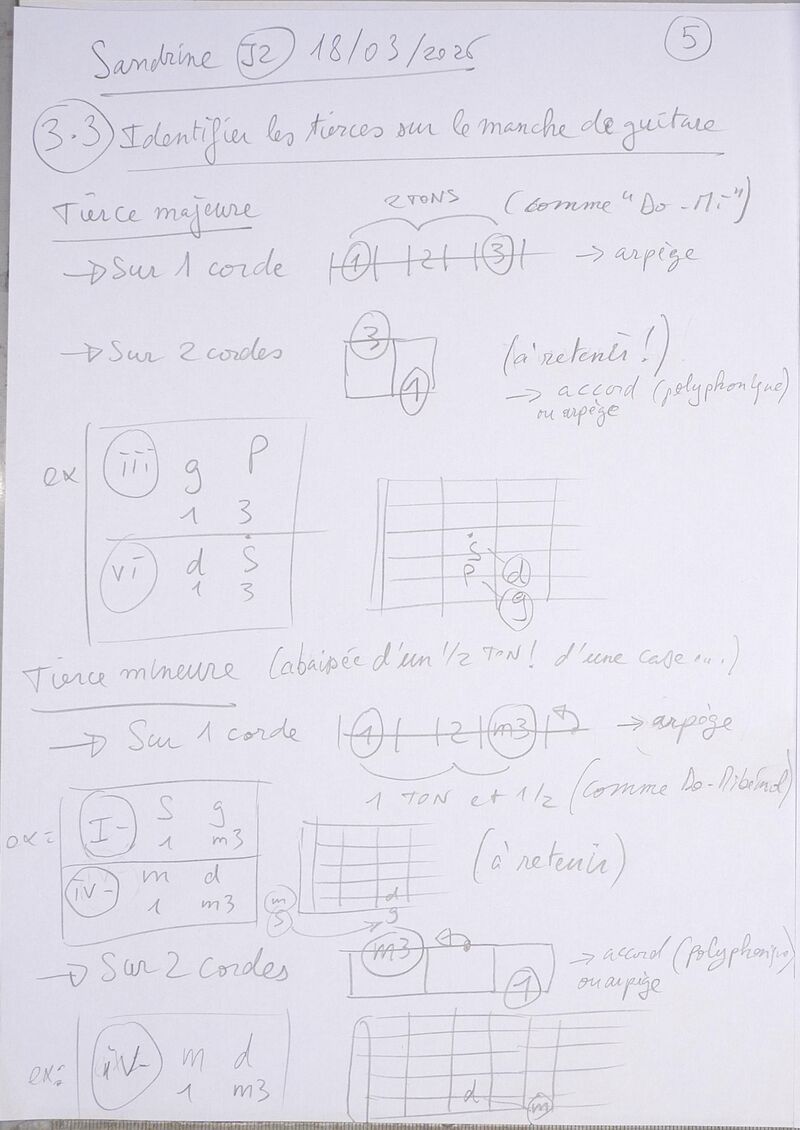 Sandrine J2 18/03/2026
5
3.3 Identifier les tierces sur le manche de guitare
Tierce majeure 2 TONS (comme "Do-Mi")
→ Sur 1 corde 1 2 3 → arpège
→ Sur 2 cordes 3 1 (à retenir!)
→ accord (polyphonique)
ou arpège
ex iii g P
1 3
vi d Ṡ
1 3
Ṡ d
P g
Tierce mineure (abaissée d'un 1/2 TON! d'une case...)
→ Sur 1 corde 1 2 m3 → arpège
1 TON et 1/2 (comme Do-Mibémol)
ex: I- S g
1 m3
iv- m d
1 m3
m d
S g
(à retenir)
→ Sur 2 cordes m3 1 → accord (polyphonique)
ou arpège
ex: iv- m d
1 m3
d m